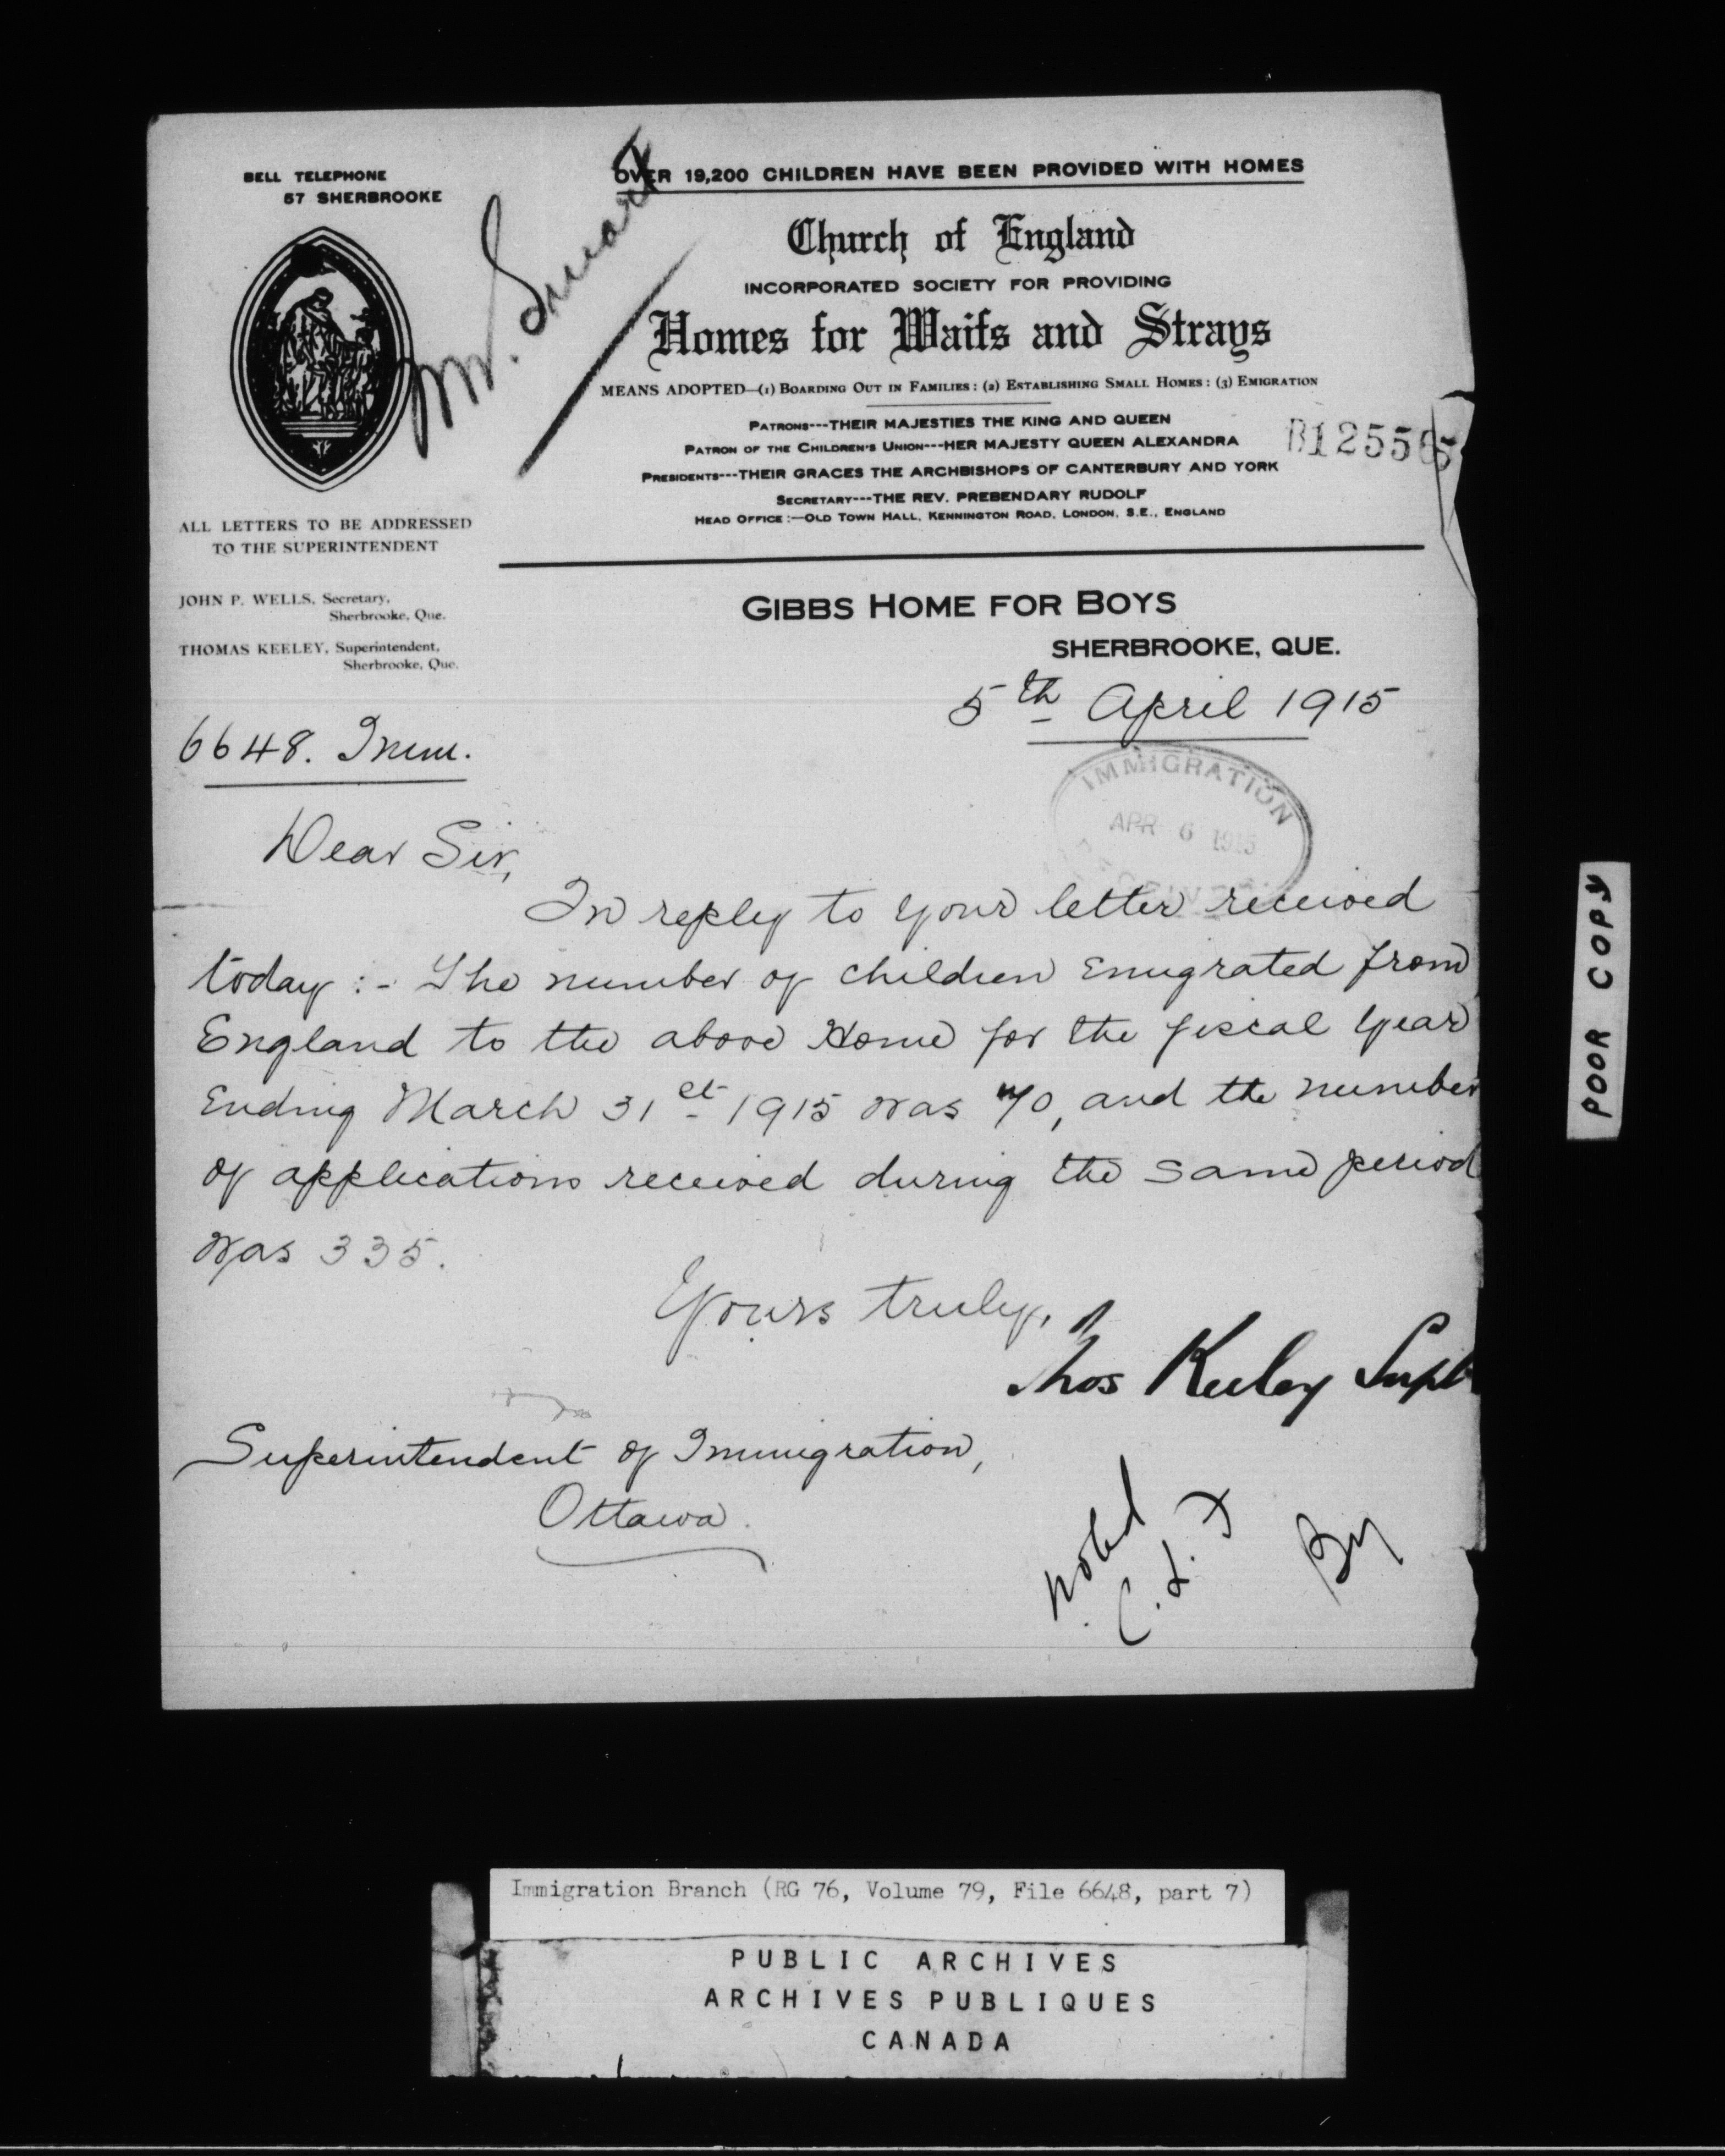 BELL TELEPHONE
57 SHERBROOKE
Mr. Smart
OVER 19,200 CHILDREN HAVE BEEN PROVIDED WITH HOMES
Church of England
INCORPORATED SOCIETY FOR PROVIDING
Homes for Waifs and Strays
MEANS ADOPTED—(1) BOARDING OUT IN FAMILIES: (2) ESTABLISHING SMALL HOMES: (3) EMIGRATION
PATRONS---THEIR MAJESTIES THE KING AND QUEEN
PATRON OF THE CHILDREN'S UNION---HER MAJESTY QUEEN ALEXANDRA
PRESIDENTS---THEIR GRACES THE ARCHBISHOPS OF CANTERBURY AND YORK
SECRETARY---THE REV. PREBENDARY RUDOLF
HEAD OFFICE:—OLD TOWN HALL, KENNINGTON ROAD, LONDON, S.E., ENGLAND
ALL LETTERS TO BE ADDRESSED
TO THE SUPERINTENDENT
JOHN P. WELLS, Secretary,
Sherbrooke, Que.
THOMAS KEELEY, Superintendent,
Sherbrooke, Que.
GIBBS HOME FOR BOYS
SHERBROOKE, QUE.
5th April 1915
6648. Imm.
IMMIGRATION
APR 6 1915
Dear Sir,
In reply to your letter received
today:- The number of children Emigrated from
England to the above Home for the fiscal year
Ending March 31st 1915 was 70, and the number
of applications received during the same period
was 335.
Yours truly,
Thos Keeley Supt
Superintendent of Immigration,
Ottawa.
Noted
POOR COPY
Immigration Branch (RG 76, Volume 79, File 6648, part 7)
PUBLIC ARCHIVES
ARCHIVES PUBLIQUES
CANADA